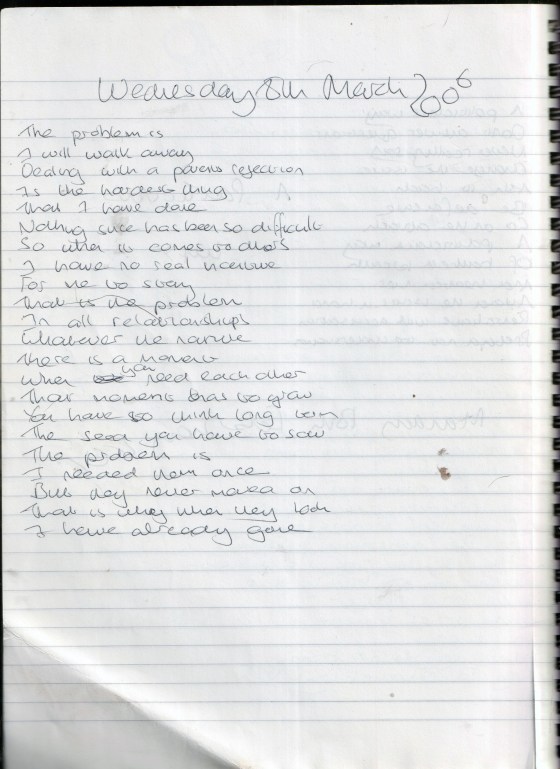 Wednesday 8th March 2006
The problem is
I will walk away
Dealing with a parents rejection
Is the hardest thing
That I have done
Nothing since has been so difficult
So when it comes to others
I have no real incentive
For me to stay
That is the problem
In all relationships
Whatever the nature
There is a moment
When you need each other
That moment has to grow
You have to think long term
The seed you have to sow
The problem is
I needed them once
But they never moved on
That is why when they look
I have already gone